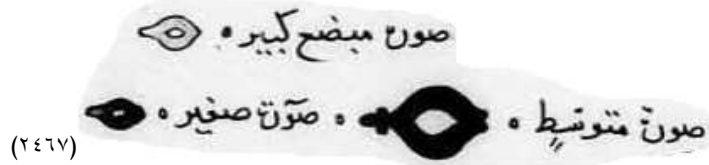 صورة مبضع كبير ٥
صورة متوسط ٥ ٥ صورة صغير ٥
(٢٤٦٧)